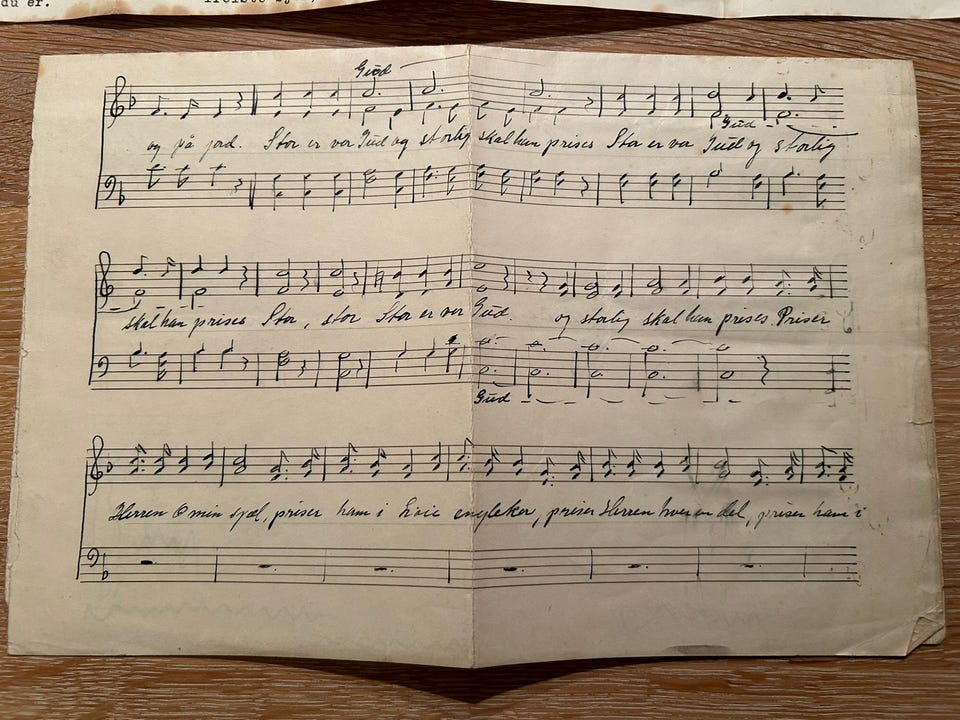 du er.
Gud
og på jord. Stor er vor Gud og storlig skal han prises Stor er vor Gud og storlig
Gud
skal han prises Stor, stor Stor er vor Gud. og storlig skal han prises. Priser
Gud
Herren O min sjæl, priser ham i høie engleker, priser Herren hver en del, priser ham i